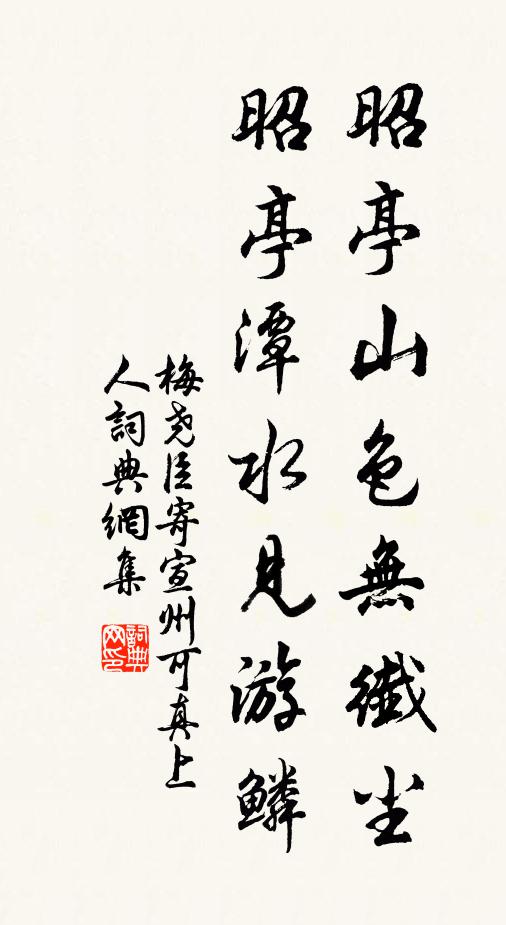 昭亭山色無纖尘
昭亭潭水見游鱗
梅尧臣寄宣州可真上
人詞典網集
詞典
网印